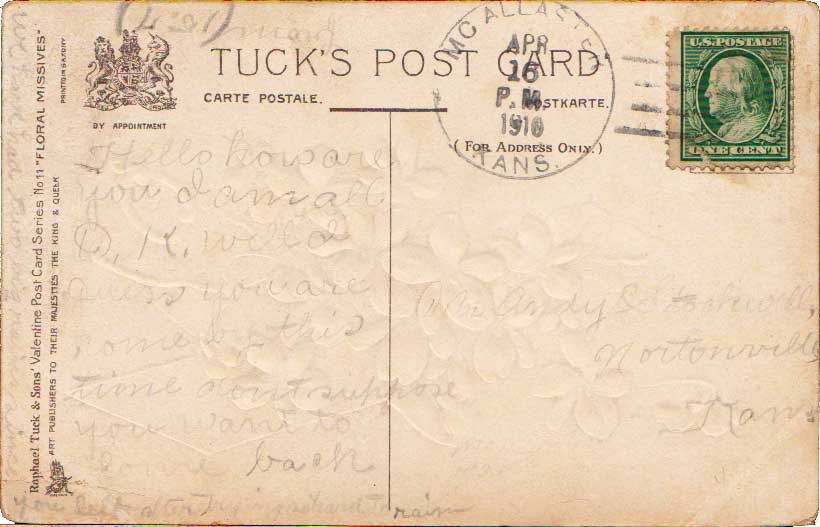 TUCK'S POST CARD
CARTE POSTALE.
POSTKARTE.
(FOR ADDRESS ONLY.)
BY APPOINTMENT
PRINTED IN SAXONY
Raphael Tuck & Sons' Valentine Post Card Series No 11 "FLORAL MISSIVES"
ART PUBLISHERS TO THEIR MAJESTIES THE KING & QUEEN
MC ALLASTER
APR
16
P.M.
1910
U.S. POSTAGE
ONE CENT
Hello how are
you, I am all
O, K, well I
guess you are
home by this
time dont suppose
you want to
come back
you left
Mr. Andy
Nortonville
Kans